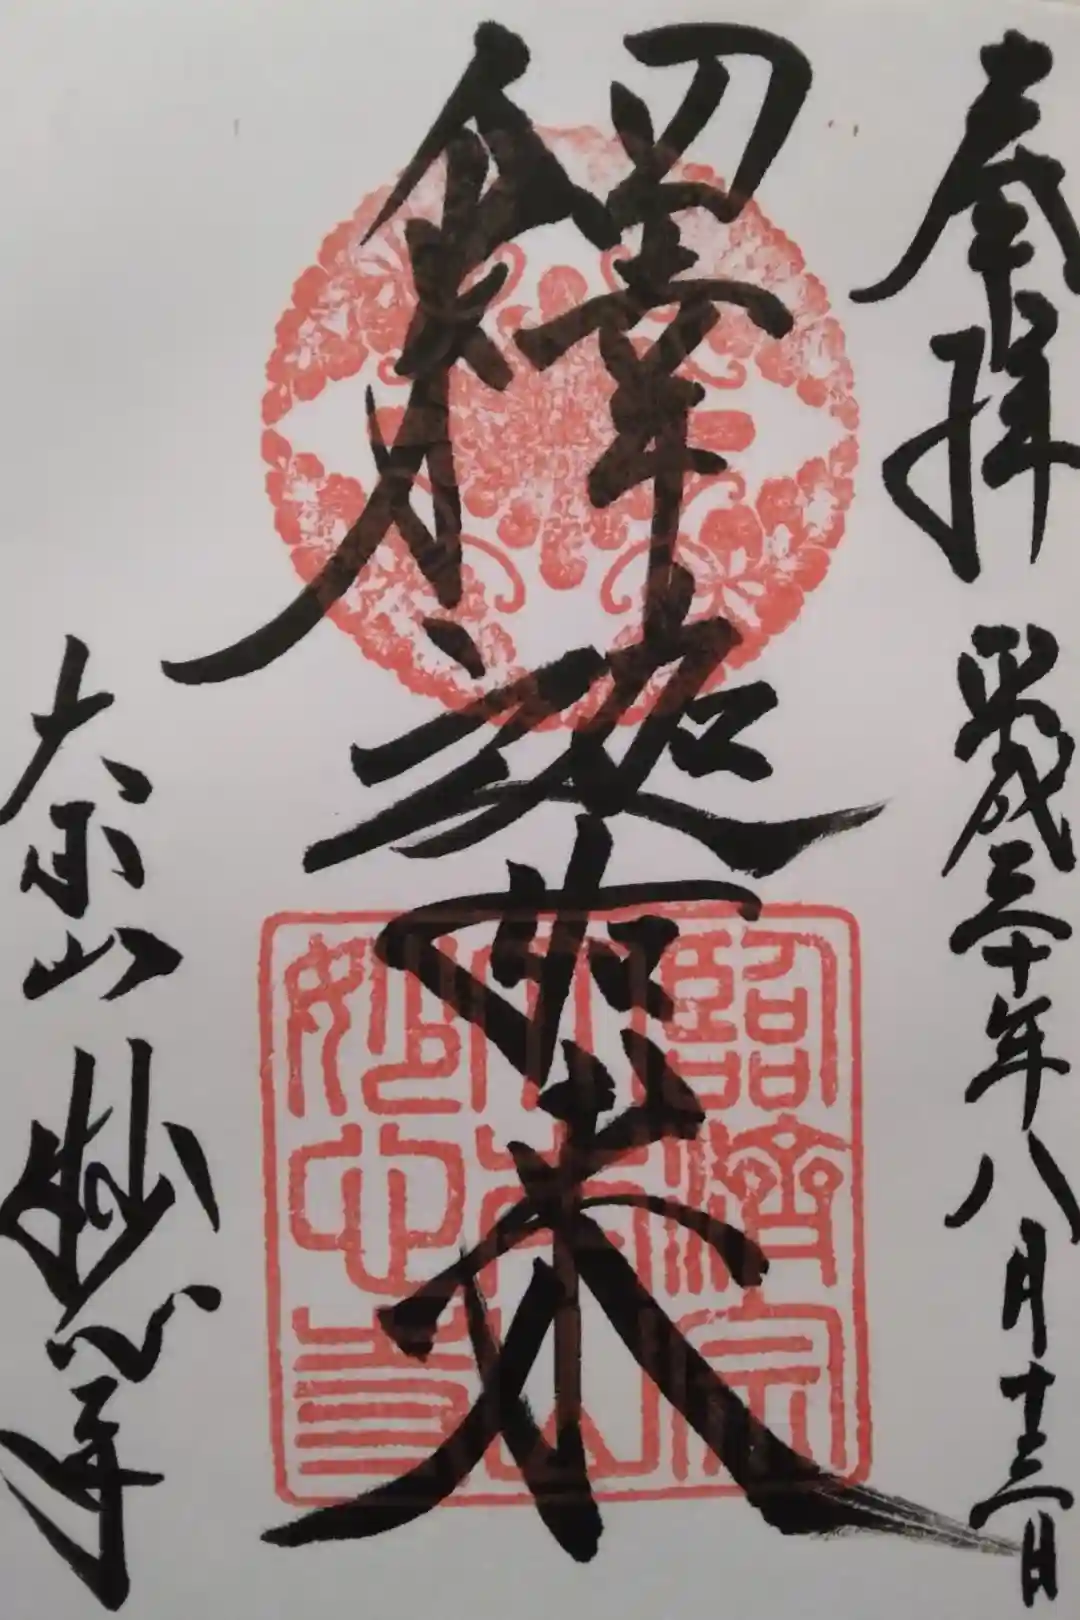 奉拝 平成三十年八月十三日
釋迦如来
大本山 妙心寺
臨濟宗
大本山
妙心寺